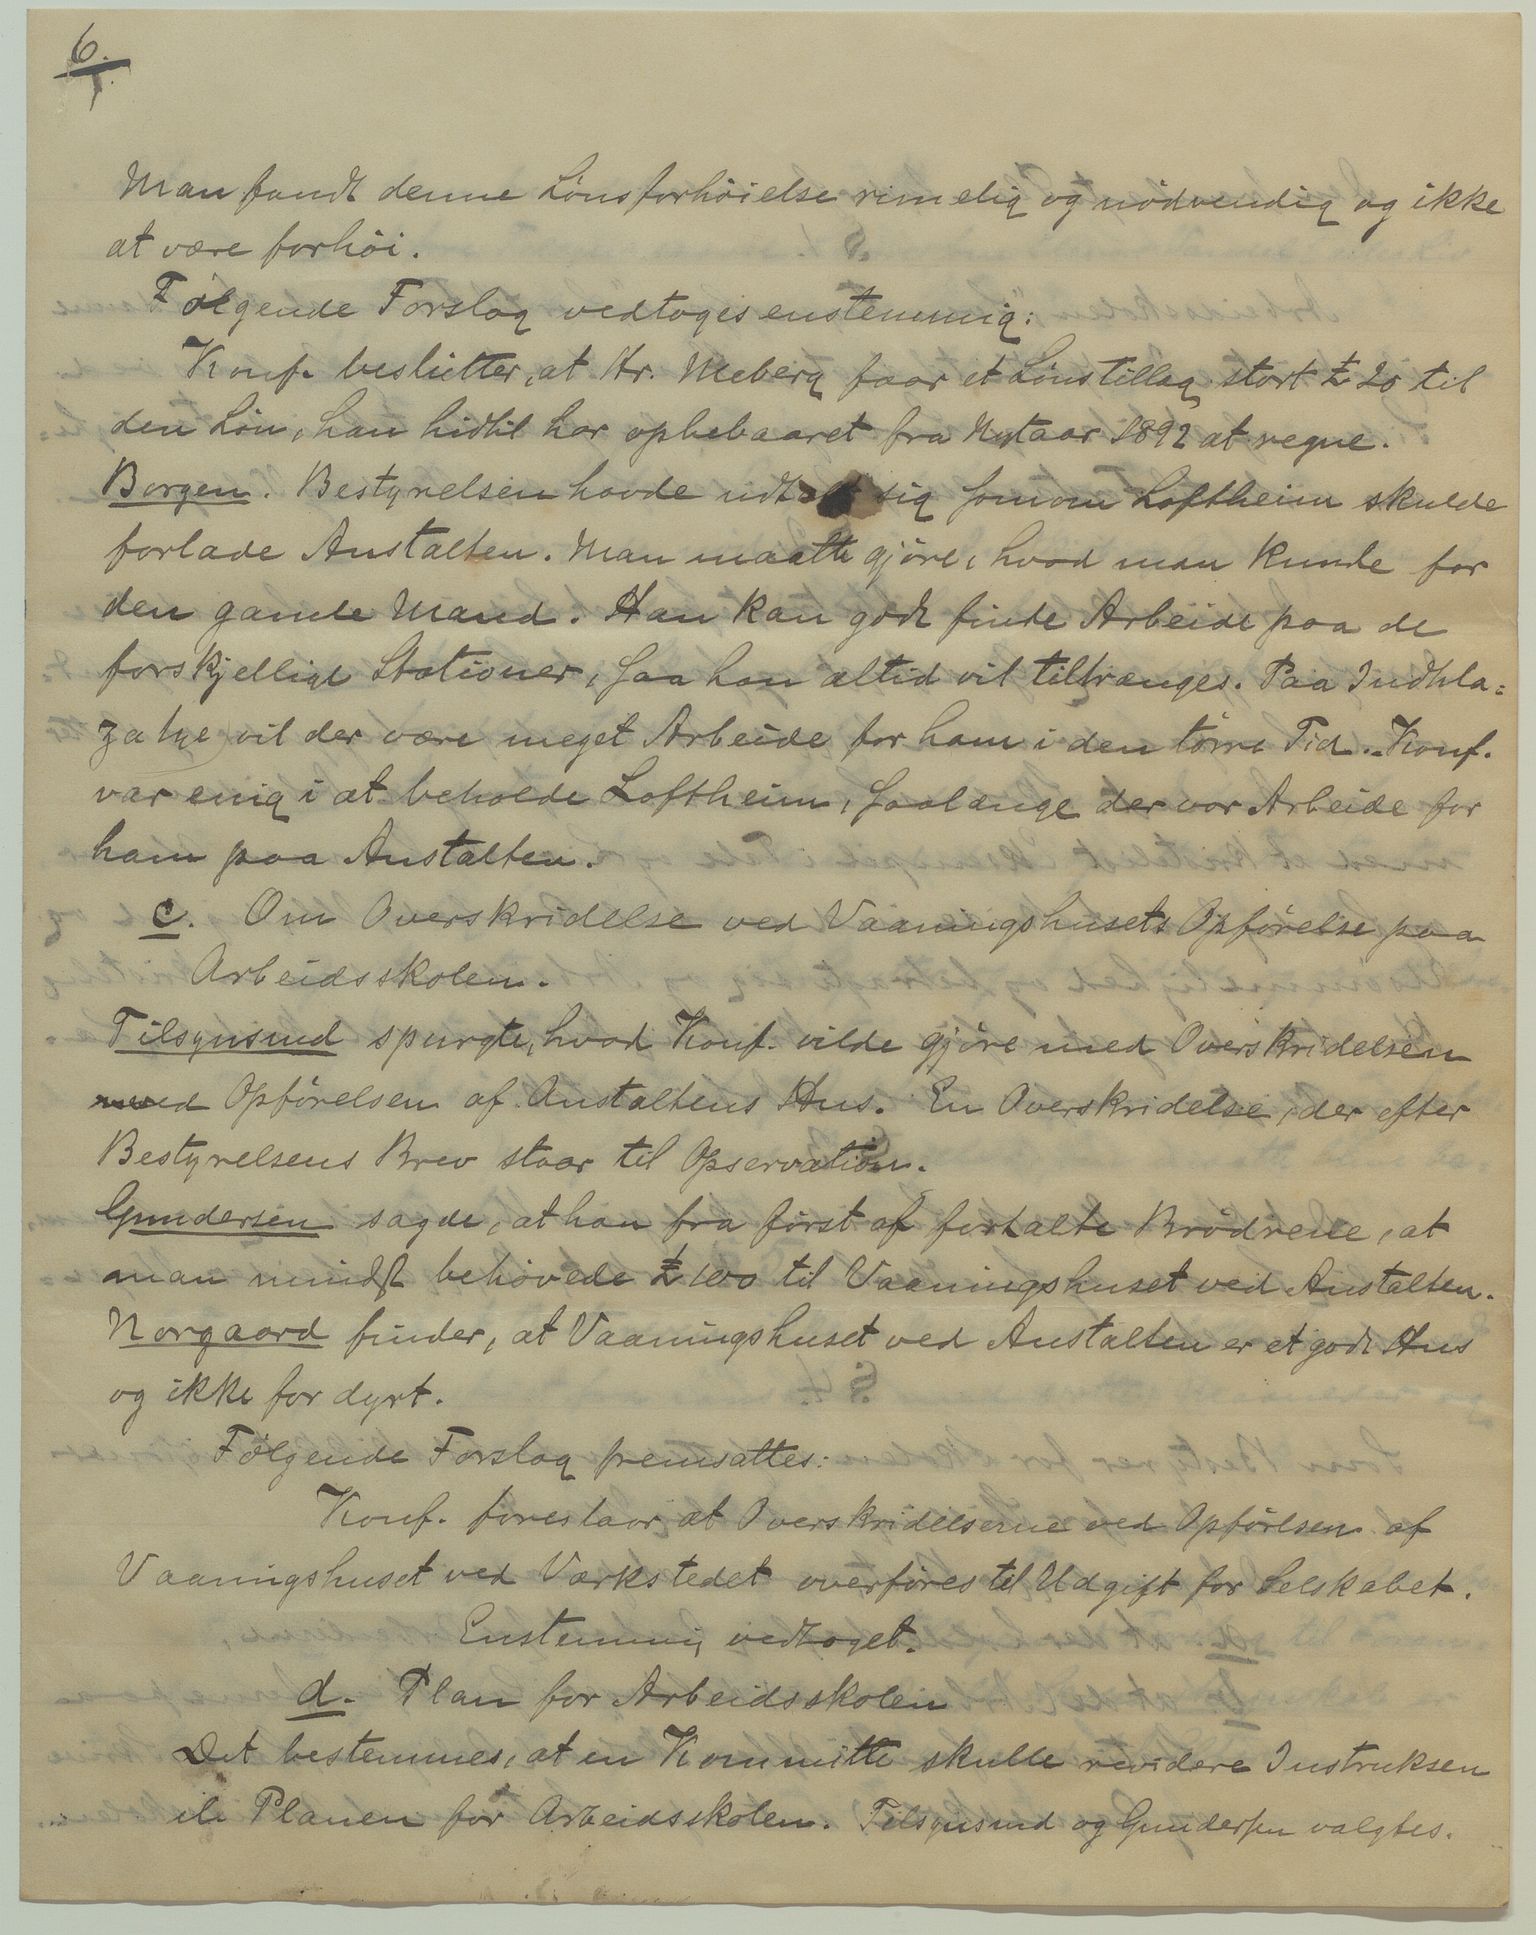 6.
Man fandt denne Lönsforhöielse rimelig og nödvendig og ikke
at være forhöi.
Følgende Forslag vedtoges enstemmig:
Konf. beslutter, at Hr. Meberg faar et Lönstillæg stort £ 20 til
den Lön, han hidtil har oppebaaret fra Nytaar 1892 at regne.
Borgen. Bestyrelsen havde udtalt sig som om Loftheim skulde
forlade Anstalten. Man maatte gjöre, hvad man kunde for
den gamle Mand. Han kan godt finde Arbeide paa de
forskjellige Stationer, saa han altid vil tiltrænges. Paa Indhla=
zatye vil der være meget Arbeide for ham i den törre Tid. - Konf.
var enig i at beholde Loftheim, saalænge der var Arbeide for
ham paa Anstalten.
c. Om Overskridelse ved Vaaningshusets Opförelse paa
Arbeidsskolen.
Tilsynsmd spurgte, hvad Konf. vilde gjöre med Overskridelsen
ved Opförelsen af Anstaltens Hus. En Overskridelse, der efter
Bestyrelsens Brev staar til Opservation.
Gundersen sagde, at han fra först af fortalte Brödrene, at
man mindst behövede £ 100 til Vaaningshuset ved Anstalten.
Norgaard finder, at Vaaningshuset ved Anstalten er et godt Hus
og ikke for dyrt.
Følgende Forslag fremsattes:
Konf. foreslaar at Overskridelserne ved Opförlsen af
Vaaningshuset ved Værkstedet overföres til Udgift for Selskabet.
Enstemmig vedtaget.
d. Plan for Arbeidsskolen
Det bestemmes, at en Kommitte skulle revidere Instruksen
el. Planen for Arbeidsskolen. Tilsynsmd og Gundersen valgtes.